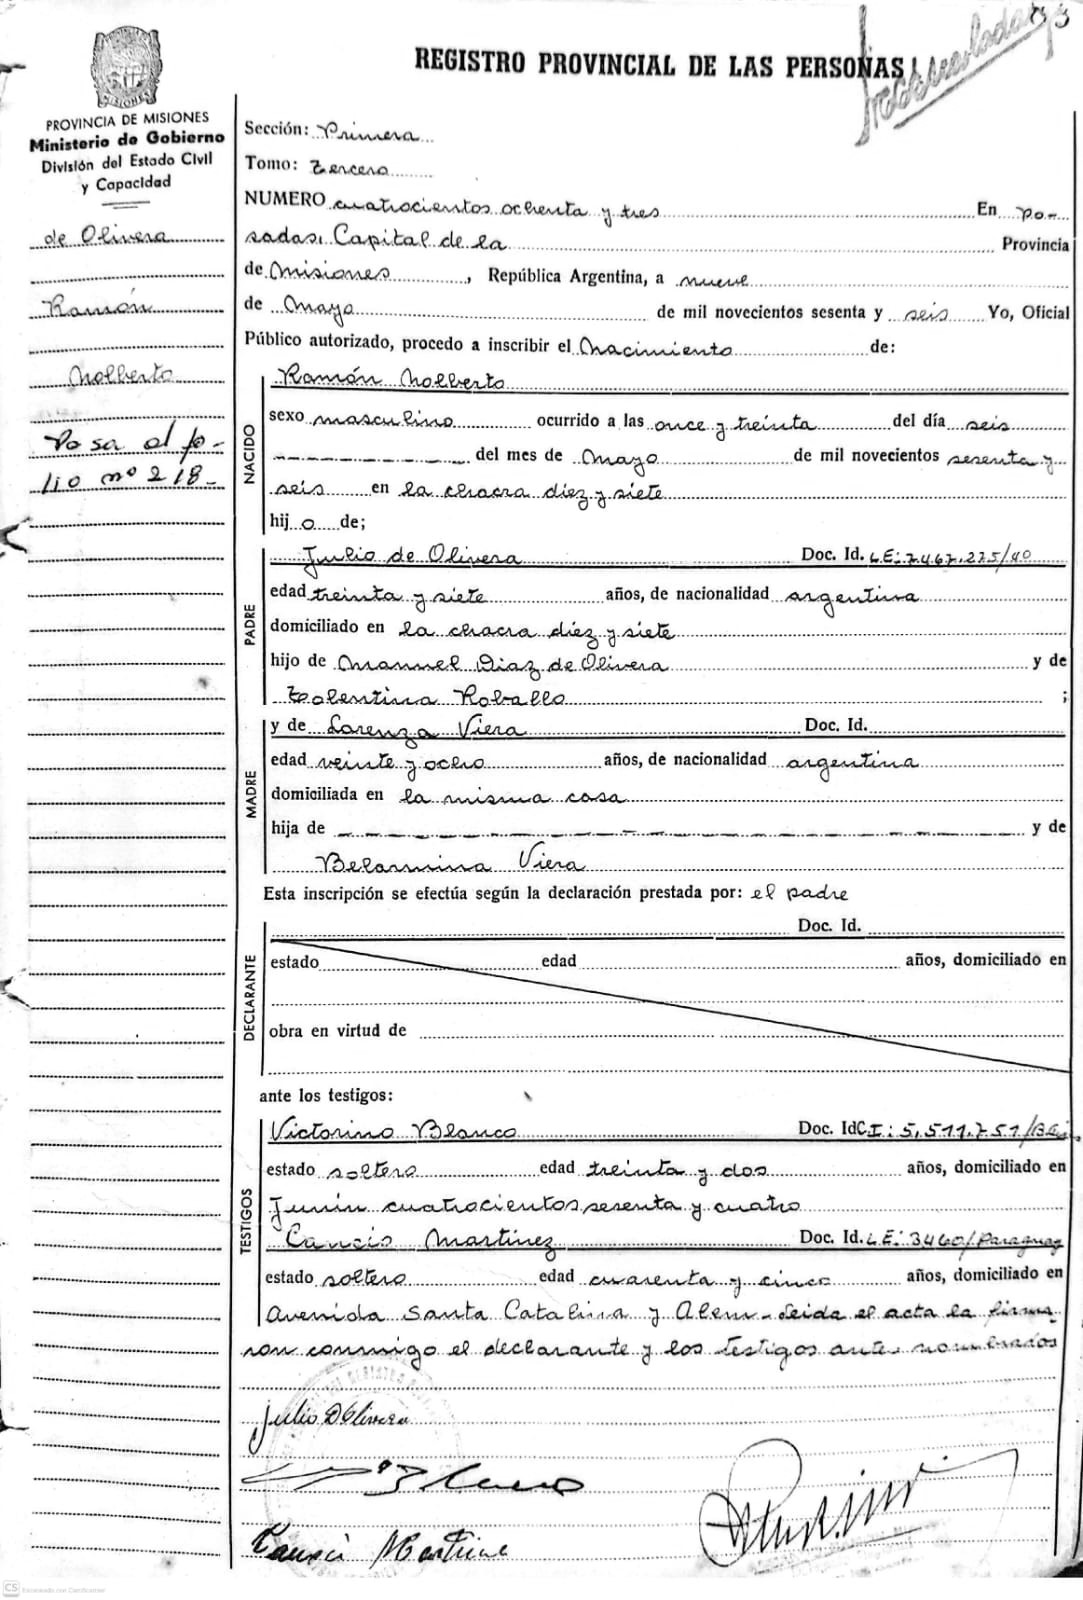 REGISTRO PROVINCIAL DE LAS PERSONAS
MISIONES
PROVINCIA DE MISIONES
Ministerio de Gobierno
División del Estado Civil
y Capacidad
de Olivera
Ramón
Nolberto
Pasa al fo-
lio nº 218-
Sección: Primera
Tomo: Tercero
NUMERO cuatrocientos ochenta y tres En Po-
sadas, Capital de la Provincia
de Misiones, República Argentina, a nueve
de Mayo de mil novecientos sesenta y seis Yo, Oficial
Público autorizado, procedo a inscribir el Nacimiento de:
NACIDO
Ramón Nolberto
sexo masculino ocurrido a las once y treinta del día seis
del mes de Mayo de mil novecientos sesenta y
seis en la chacra diez y siete
hijo de;
PADRE
Julio de Olivera Doc. Id. LE: 7.467.225/40
edad treinta y siete años, de nacionalidad argentina
domiciliado en la chacra diez y siete
hijo de Manuel Diaz de Olivera y de
Tolentina Roballo ;
MADRE
y de Lorenza Viera Doc. Id.
edad veinte y ocho años, de nacionalidad argentina
domiciliada en la misma casa
hija de y de
Belarmina Viera
Esta inscripción se efectúa según la declaración prestada por: el padre
DECLARANTE
Doc. Id.
estado edad años, domiciliado en
obra en virtud de
ante los testigos:
TESTIGOS
Victorino Blanco Doc. Id CI: 5,511.751/
estado soltero edad treinta y dos años, domiciliado en
Junín cuatrocientos sesenta y cuatro
Cancio Martinez Doc. Id. LE: 3460/Paraguay
estado soltero edad cuarenta y cinco años, domiciliado en
Avenida Santa Catalina y Alem - Leida el acta la firma-
ron conmigo el declarante y los testigos antes nombrados
Julio D Olivera
Blanco
Cancio Martinez
CS Escaneado con CamScanner